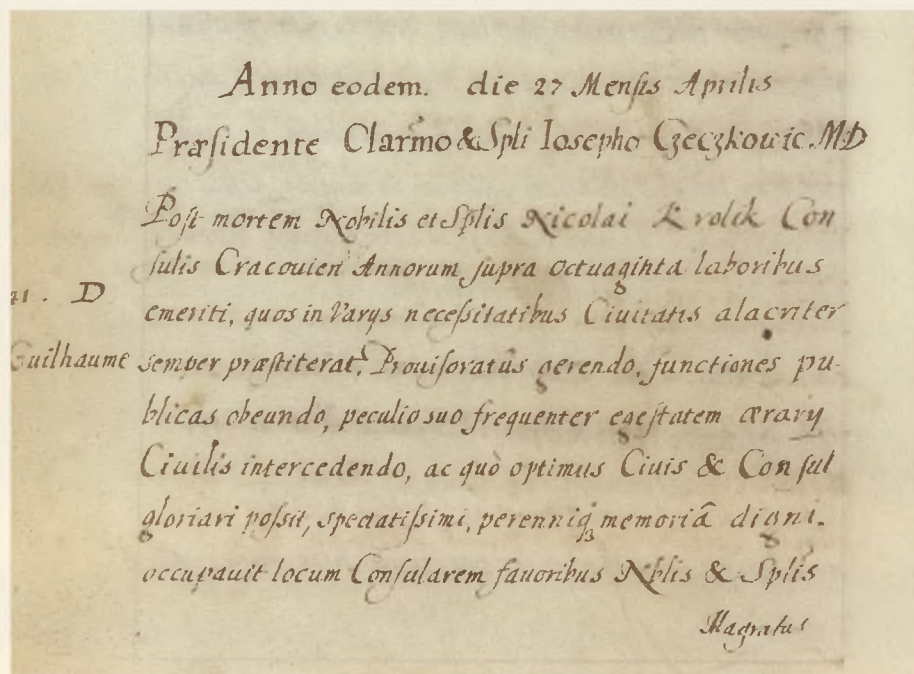 Anno eodem. die 27 Mensis Aprilis
Præsidente Clarmo & Spli Iosepho Czeczkowic. MD
Post mortem Nobilis et Splis Nicolai Krolik Con
sulis Cracouien Annorum supra octuaginta laboribus
emeriti, quos in Varijs necessitatibus Ciuitatis alacriter
semper præstiterat, Prouisoratûs gerendo, functiones pu-
blicas obeundo, peculio suo frequenter egestatem ærarij
Ciuilis intercedendo, ac quò optimus Ciuis & Consul
gloriari possit, spectatissimi, perenniq memoriâ digni.
occupauit locum Consularem fauoribus Nblis & Splis
Magratus
41. D
Guilhaume